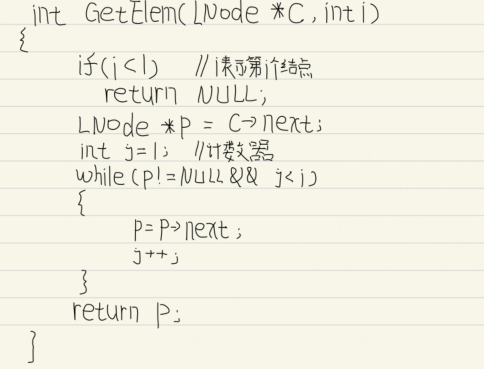 int GetElem(LNode *C,int i)
{
if(i<1) //i表示第i个结点
return NULL;
LNode *p = C->next;
int j=1; //计数器
while(p!=NULL && j<i)
{
p=p->next;
j++;
}
return p;
}